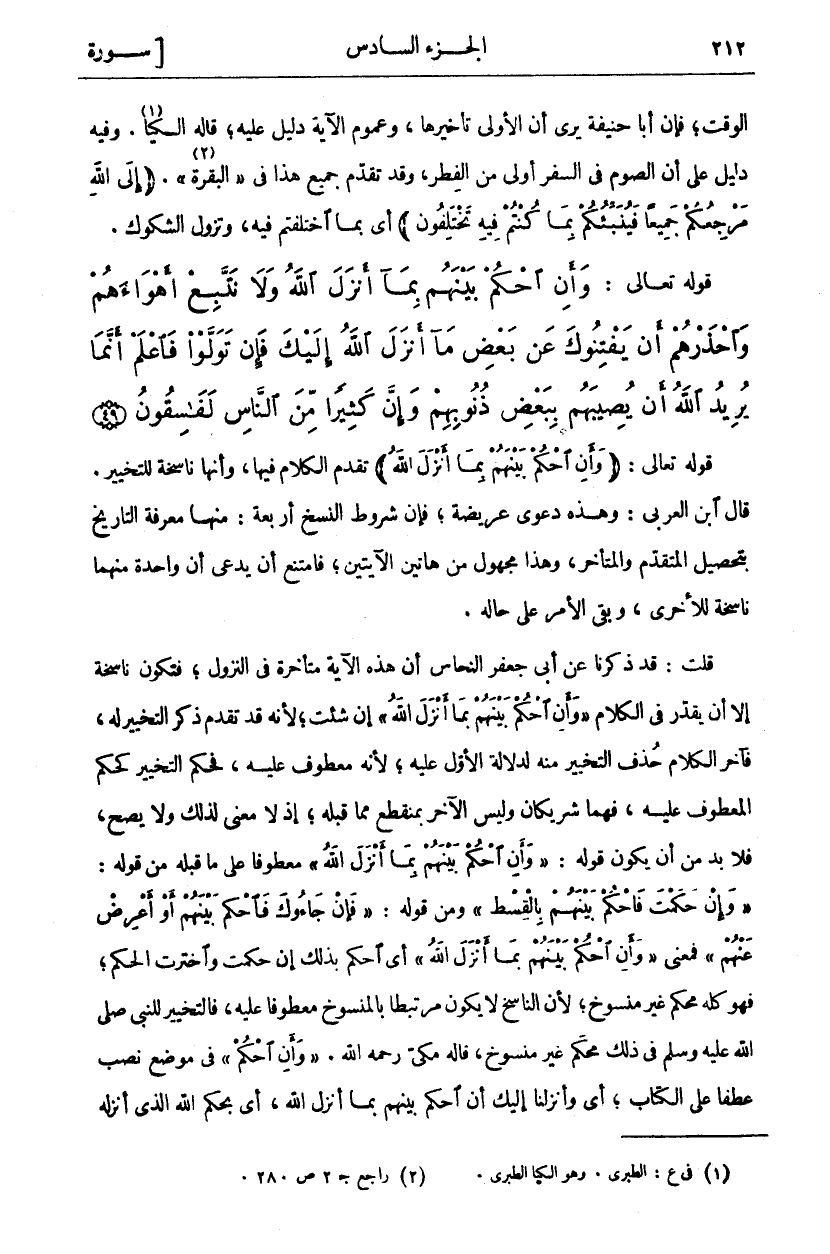 ٢١٢ الجـزء السادس [ سـورة
الوقت؛ فإن أبا حنيفة يرى أن الأولى تأخيرها ، وعموم الآية دليل عليه؛ قاله الكيا (١) . وفيه
دليل على أن الصوم فى السفر أولى من الفطر، وقد تقدّم جميع هذا فى « البقرة » (٢) . ﴿ إِلَى اللَّهِ
مَرْجِعُكُمْ جَمِيعًا فَيُنَبِّئُكُمْ بِمَا كُنْتُمْ فِيهِ تَخْتَلِفُون ﴾ أى بما آختلفتم فيه، وتزول الشكوك .
قوله تعالى : وَأَنِ ٱحْكُمْ بَيْنَهُم بِمَآ أَنزَلَ ٱللَّهُ وَلَا تَتَّبِعْ أَهْوَآءَهُمْ
وَٱحْذَرْهُمْ أَن يَفْتِنُوكَ عَن بَعْضِ مَآ أَنزَلَ ٱللَّهُ إِلَيْكَ فَإِن تَوَلَّوْا۟ فَٱعْلَمْ أَنَّمَا
يُرِيدُ ٱللَّهُ أَن يُصِيبَهُم بِبَعْضِ ذُنُوبِهِمْ وَإِنَّ كَثِيرًا مِّنَ ٱلنَّاسِ لَفَـٰسِقُونَ ﴿٤٩﴾
قوله تعالى : ﴿ وَأَنِ ٱحْكُمْ بَيْنَهُمْ بِمَا أَنْزَلَ اللَّهُ ﴾ تقدم الكلام فيها، وأنها ناسخة للتخيير .
قال ٱبن العربى : وهـذه دعوى عريضة ؛ فإن شروط النسخ أربعة : منهـا معرفة التاريخ
بتحصيل المتقدّم والمتأخر، وهذا مجهول من هاتين الآيتين ؛ فامتنع أن يدعى أن واحدة منهما
ناسخة للأخرى ، وبقى الأمر على حاله .
قلت : قد ذكرنا عن أبى جعفر النحاس أن هذه الآية متأخرة فى النزول ؛ فتكون ناسخة
إلا أن يقدّر فى الكلام «وَأَنِ ٱحْكُمْ بَيْنَهُمْ بِمَا أَنْزَلَ اللَّهُ» إن شئت؛ لأنه قد تقدم ذكر التخيير له ،
فآخر الكلام حُذف التخيير منه لدلالة الأوّل عليه ؛ لأنه معطوف عليـه ، فحكم التخيير كحكم
المعطوف عليـه ، فهما شريكان وليس الآخر بمنقطع مما قبله ؛ إذ لا معنى لذلك ولا يصح ،
فلا بد من أن يكون قوله : « وَأَنِ ٱحْكُمْ بَيْنَهُمْ بِمَا أَنْزَلَ اللَّهُ » معطوفا على ما قبله من قوله :
« وَإِنْ حَكَمْتَ فَاحْكُمْ بَيْنَهُـمْ بِالْقِسْط » ومن قوله : « فَإِنْ جَاءُوكَ فَٱحْكم بَيْنَهُمْ أَوْ أَعْرِضْ
عَنْهُمْ » فمعنى « وَأَنِ ٱحْكُمْ بَيْنَهُمْ بِمَـا أَنْزَلَ اللَّهُ » أى ٱحكم بذلك إن حكمت وٱخترت الحكم؛
فهو كله محكم غير منسوخ؛ لأن الناسخ لا يكون مرتبطا بالمنسوخ معطوفا عليه، فالتخيير للنبى صلى
الله عليه وسلم فى ذلك محكَم غير منسوخ، قاله مكىّ رحمه الله . « وَأَنِ ٱحْكُمْ » فى موضع نصب
عطفا على الكتاب ؛ أى وأنزلنا إليك أن ٱحكم بينهم بمـا أنزل الله ، أى بحكم الله الذى أنزله
(١) فى ع : الطبرى . وهو الكيا الطبرى . (٢) راجع جـ ٢ ص ٢٨٠ .